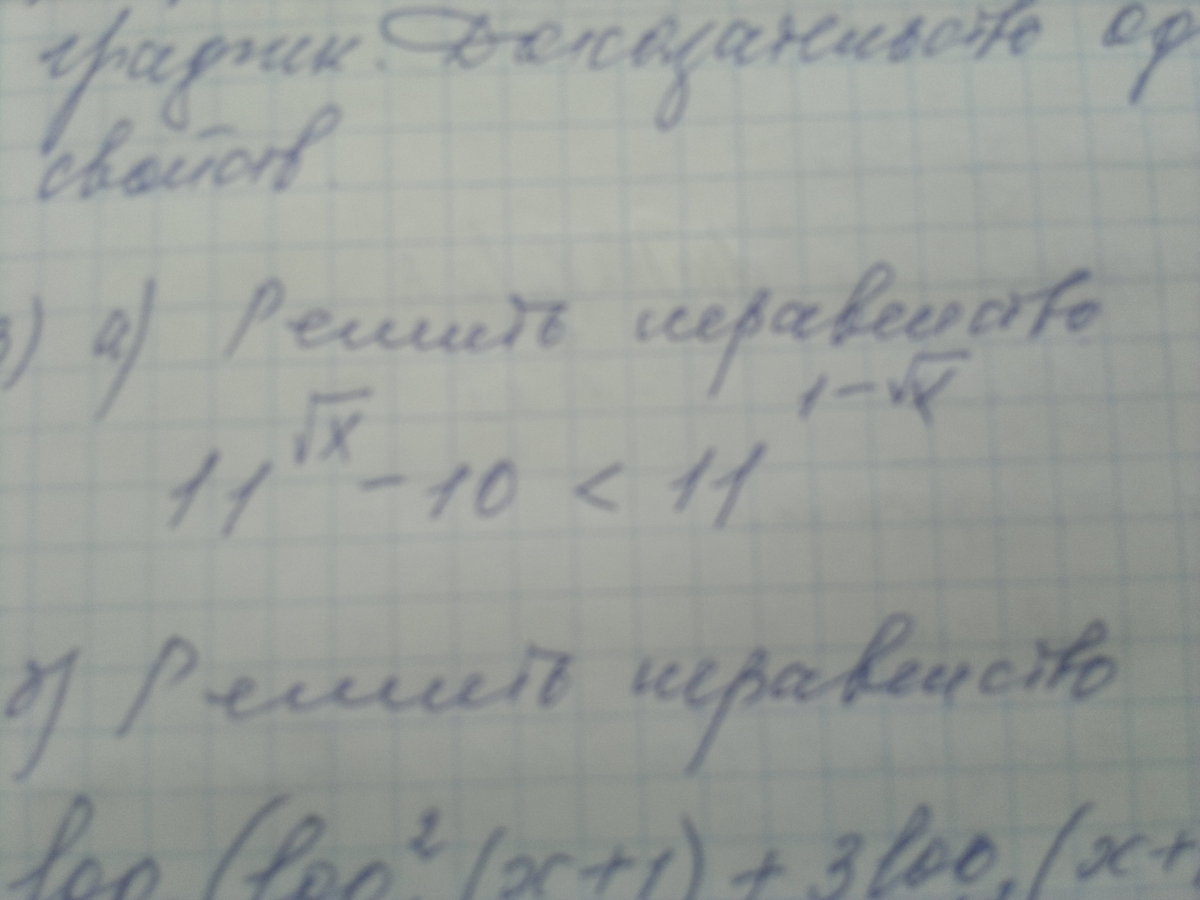 график. Доказательство од
свойств.
3) а) Решить неравенство
11^√x - 10 < 11^1-√x
б) Решить неравенство
log (log² (x+1) + 3 log (x+